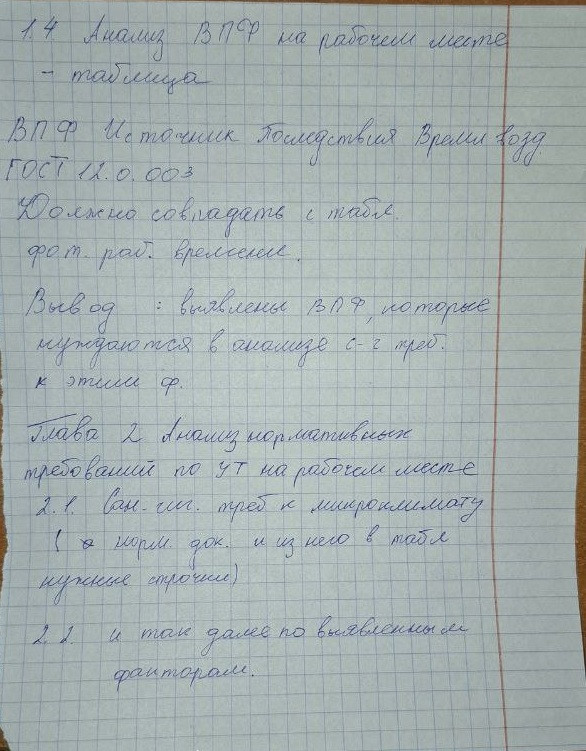 1.4 Анализ ВПФ на рабочем месте
- таблица
ВПФ Источник Последствия Время возд.
ГОСТ 12.0.003
Должно совпадать с табл.
фот. раб. времени.
Вывод : выявлены ВПФ, которые
нуждаются в анализе с-г треб.
к этим ф.
Глава 2 Анализ нормативных
требований по УТ на рабочем месте
2.1. Сан.-гиг. треб к микроклимату
( норм. док. и из него в табл
нужные строчки)
2.2. и так далее по выявленным
факторам.